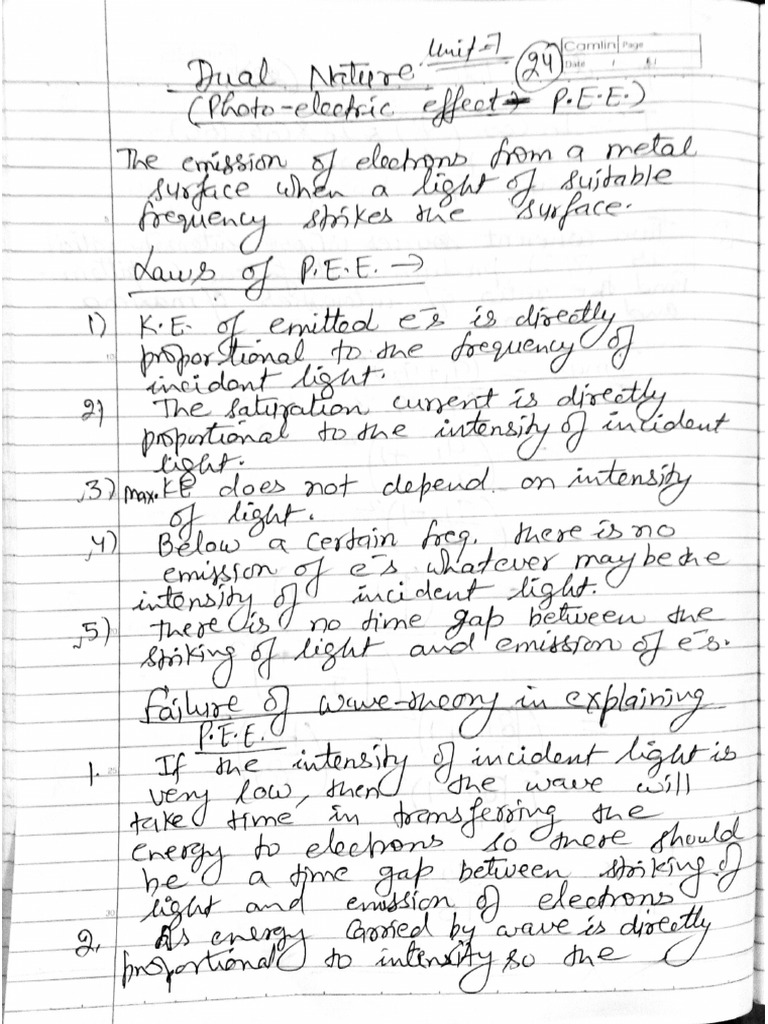 Unit-7
24
Camlin Page
Date / /
Dual Nature
(Photo-electric effect → P.E.E.)
The emission of electrons from a metal
surface when a light of suitable
frequency strikes the surface.
Laws of P.E.E. →
1) K.E. of emitted e⁻s is directly
proporstional to the frequency of
incident light.
2) The saturation current is directly
proportional to the intensity of incident
light.
3) max. KE does not depend on intensity
of light.
4) Below a certain freq. there is no
emission of e⁻s whatever may be the
intensity of incident light.
5) there is no time gap between the
striking of light and emission of e⁻s.
Failure of wave-theory in explaining
P.E.E.
1. If the intensity of incident light is
very low, then the wave will
take time in transferring the
energy to electrons so there should
be a time gap between striking of
light and emission of electrons
2. As energy carried by wave is directly
proportional to intensity so the